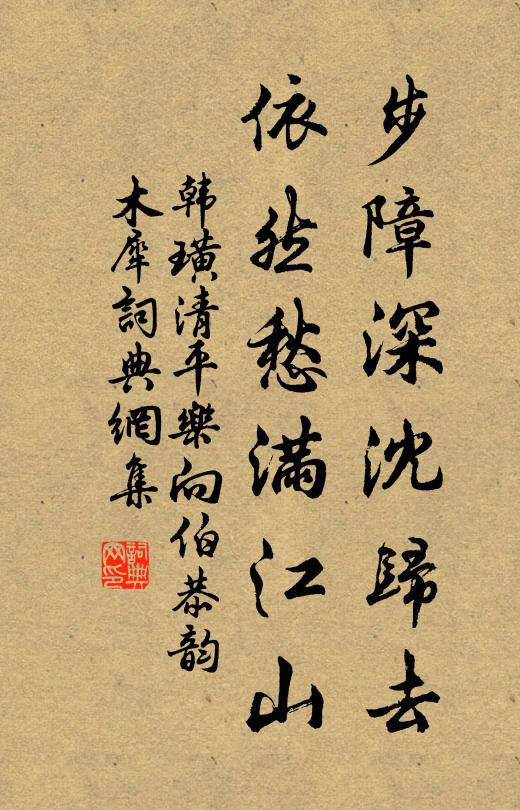 步障深沈歸去
依然愁滿江山
韩璜清平樂向伯恭韵
木犀詞典網集
詞典网印